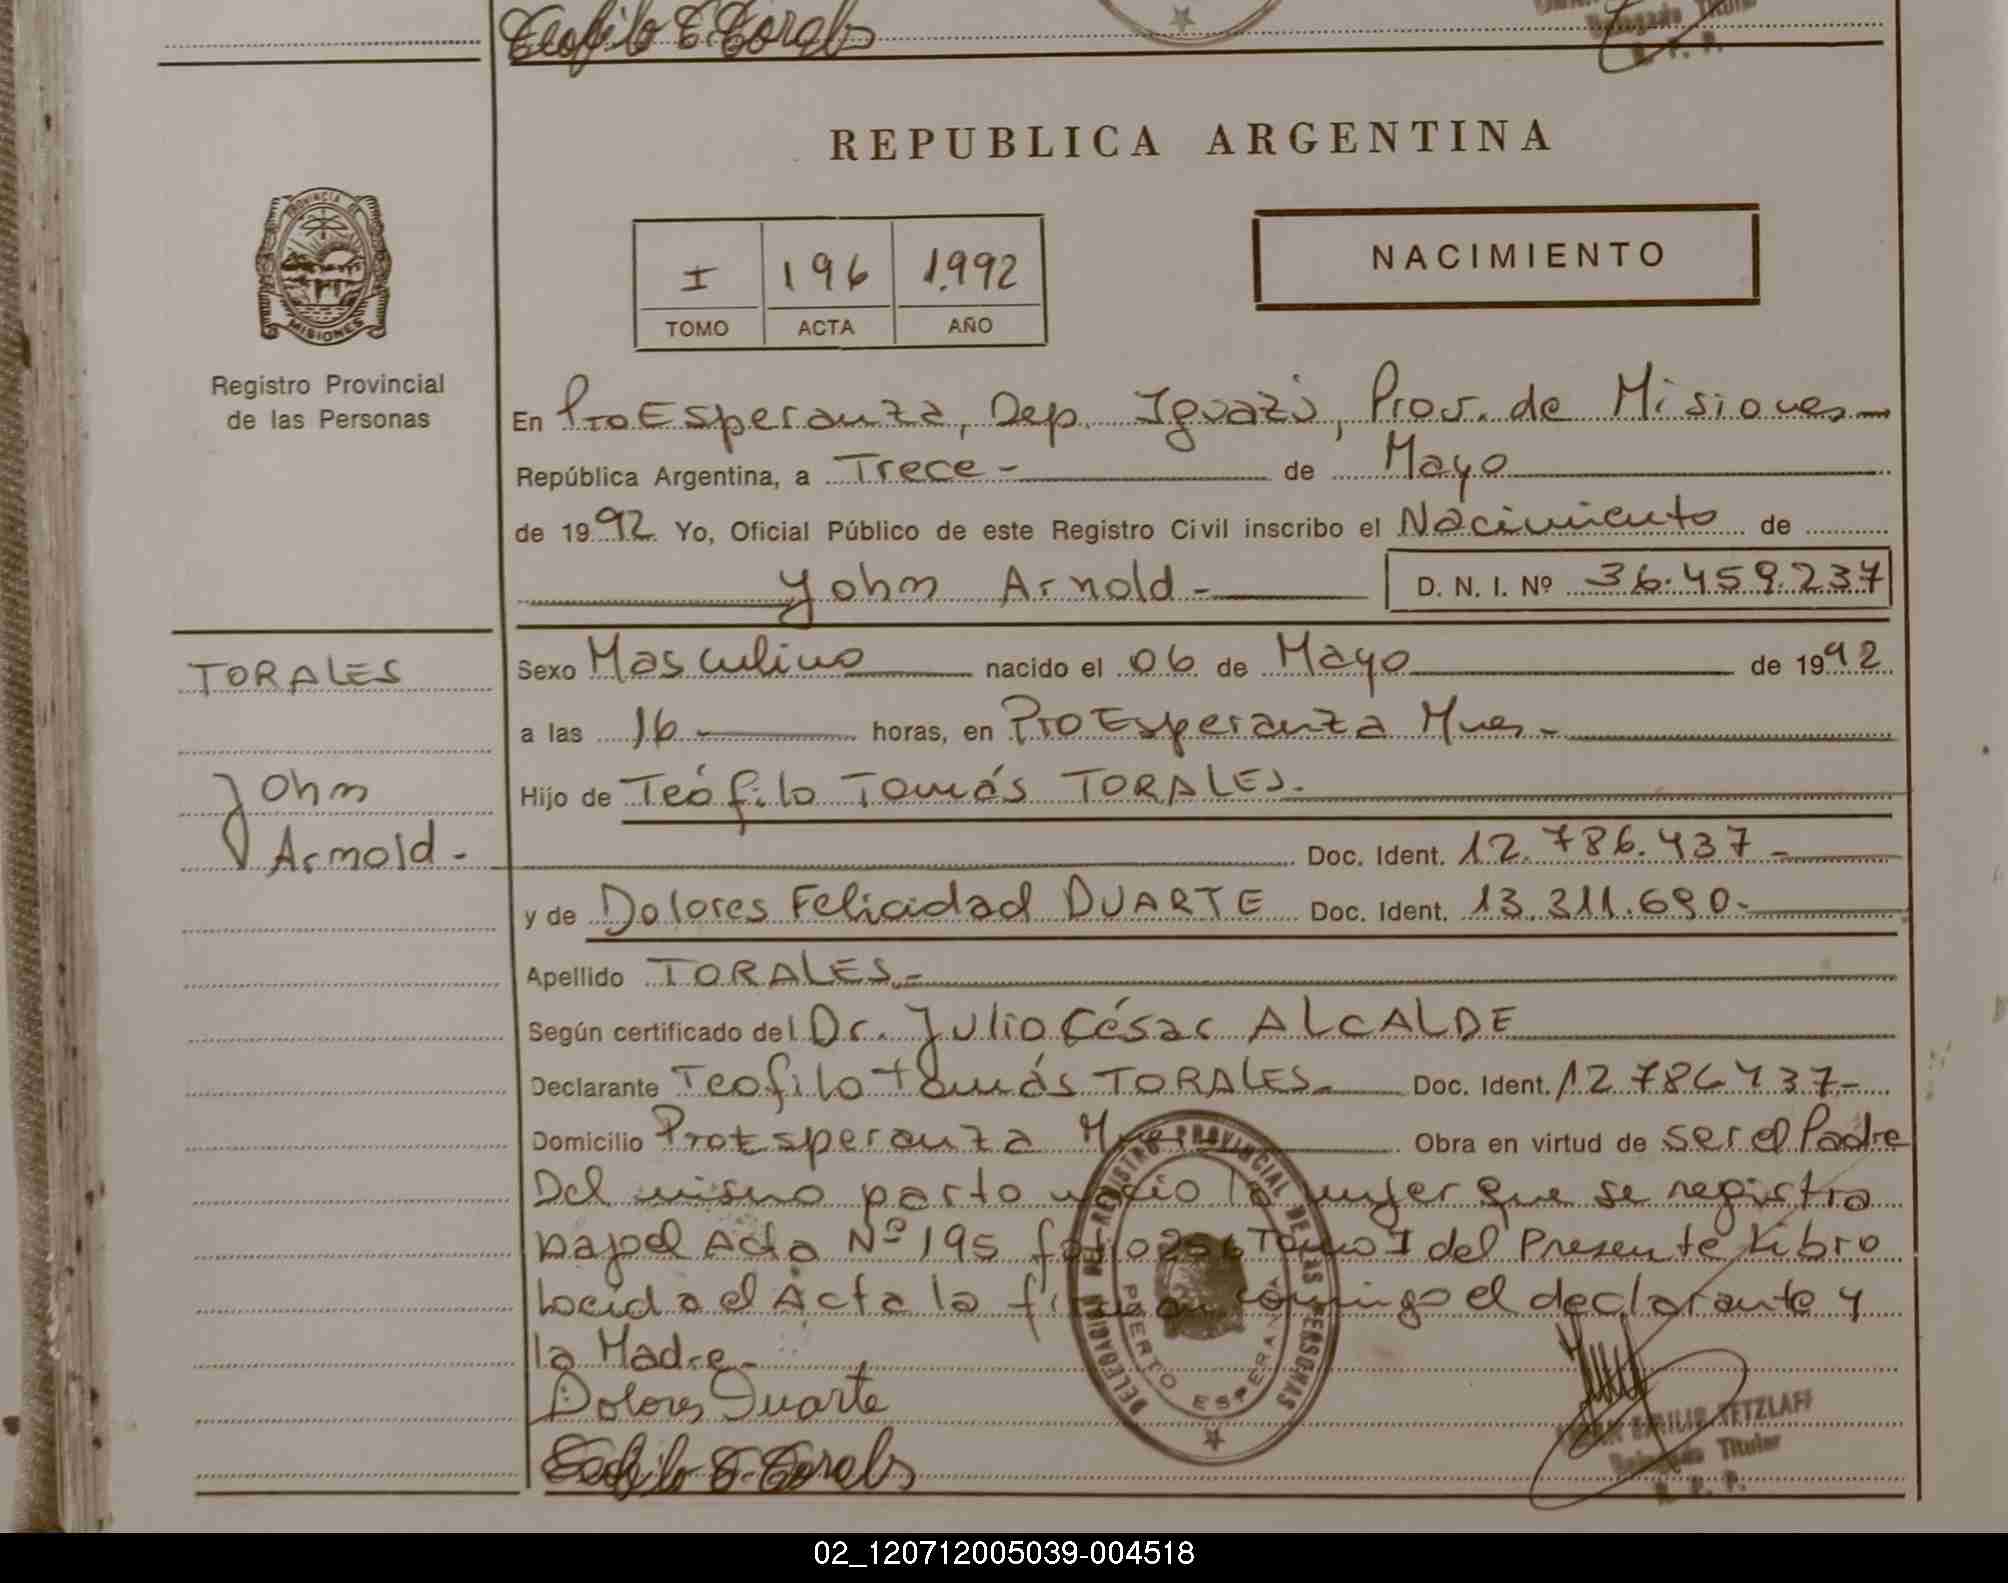 Teofilo T. Torales
Delegado Titular
R. P. P.
REPUBLICA ARGENTINA
PROVINCIA DE
MISIONES
Registro Provincial
de las Personas
NACIMIENTO
I 196 1.992
TOMO ACTA AÑO
En Pto Esperanza, Dep. Iguazú, Prov. de Misiones
República Argentina, a Trece - de Mayo
de 1992 Yo, Oficial Público de este Registro Civil inscribo el Nacimiento de
John Arnold - D. N. I. Nº 36.459.237
TORALES
John
Arnold -
Sexo Masculino nacido el 06 de Mayo de 1992
a las 16 horas, en Pto Esperanza Mnes -
Hijo de Teófilo Tomás TORALES.
Doc. Ident. 12.786.437 -
y de Dolores Felicidad DUARTE Doc. Ident. 13.311.690 -
Apellido TORALES -
Según certificado del Dr. Julio César ALCALDE
Declarante Teofilo Tomás TORALES - Doc. Ident. 12786437 -
Domicilio Pto Esperanza Mnes Obra en virtud de ser el Padre
Del mismo parto nacio la mujer que se registra
bajo el Acta Nº 195 folio Tomo I del Presente Libro
Leida el Acta la firman conmigo el declarante y
la Madre -
Dolores Duarte
Teofilo T. Torales
DELEGACION DEL REGISTRO PROVINCIAL DE LAS PERSONAS
PUERTO ESPERANZA
EMILIO TETZLAFF
Delegado Titular
R. P. P.
02_120712005039-004518